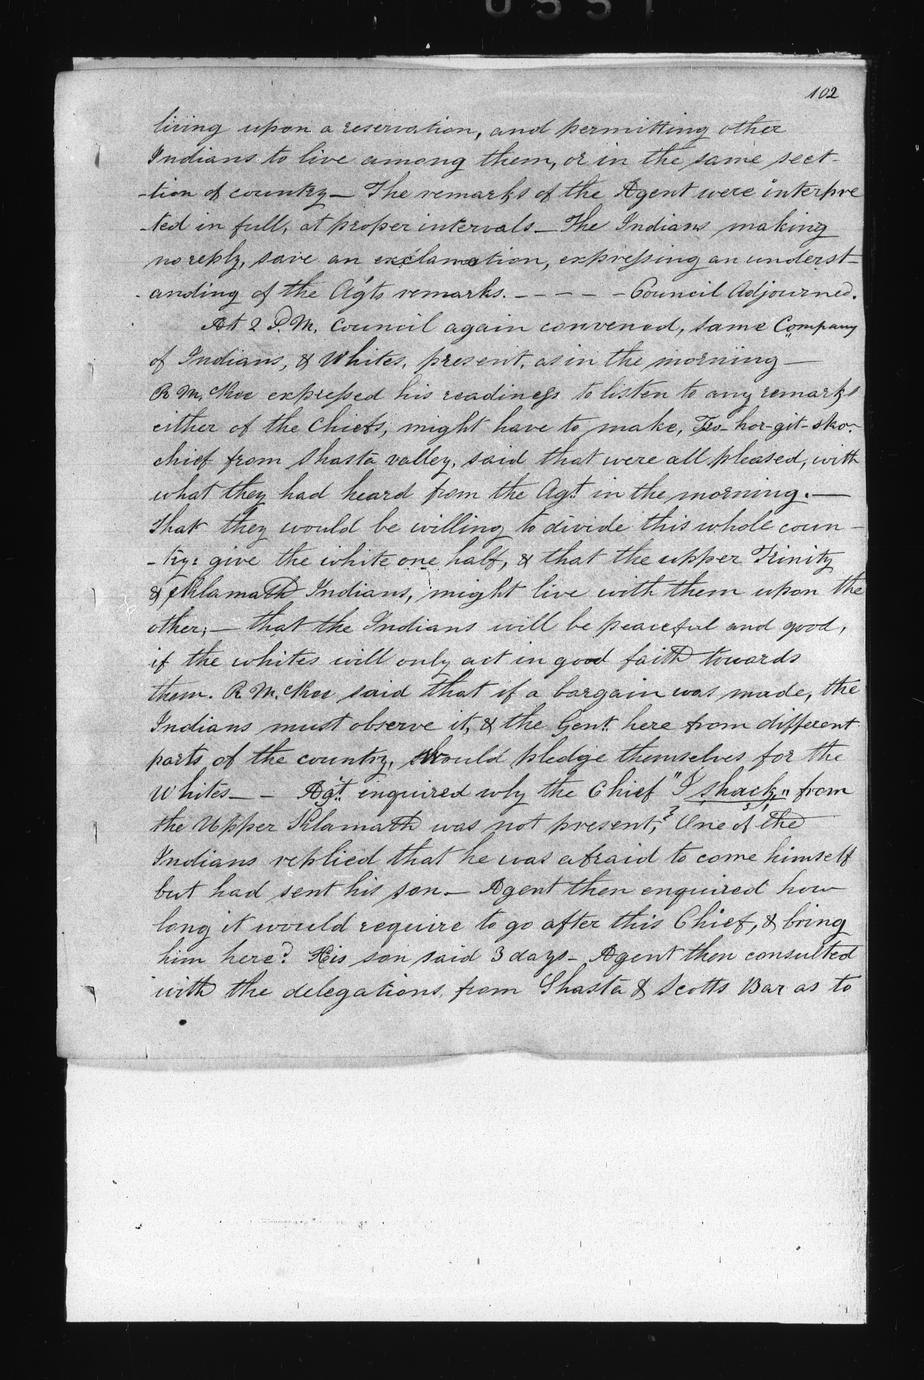 0551
102
living upon a reservation, and permitting other
Indians to live among them, or in the same sect-
-tion of country— The remarks of the Agent were interpre
-ted in full, at proper intervals— The Indians making
no reply, save an exclamation, expressing an underst-
-anding of the Agts remarks. - - - - - Council Adjourned.
At 2 P.M. Council again convened, same Company
of Indians, & Whites, present, as in the morning—
R M, Kee expressed his readiness to listen to any remarks
either of the Chiefs, might have to make, Tso-hor-git-sko-
chief from Shasta valley, said that were all pleased, with
what they had heard from the Agt in the morning.—
That they would be willing to divide this whole coun-
-try: give the white one half, & that the upper Trinity
& Klamath Indians, might live with them upon the
other;— that the Indians will be peaceful and good,
if the whites will only act in good faith towards
them. R M, Kee said that if a bargain was made, the
Indians must observe it, & the Gent. here from different
parts of the country, should pledge themselves for the
Whites— - Agt. inquired why the Chief "I shack" from
the Upper Klamath was not present,? One of the
Indians replied that he was afraid to come himself
but had sent his son— Agent then enquired how
long it would require to go after this Chief, & bring
him here? His son said 3 days- Agent then consulted
with the delegations, from Shasta & Scotts Bar as to